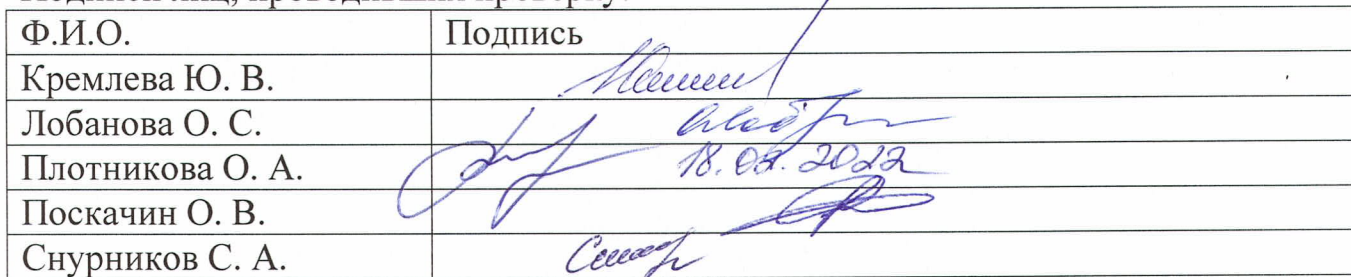 Ф.И.О. Подпись
Кремлева Ю. В.
Лобанова О. С.
Плотникова О. А. 18.02.2022
Поскачин О. В.
Снурников С. А.